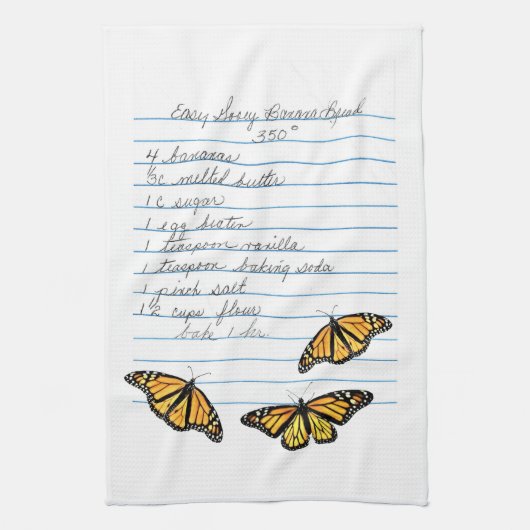 Easy Gooey Banana Bread
350°
4 bananas
⅓c melted butter
1 c sugar
1 egg beaten
1 teaspoon vanilla
1 teaspoon baking soda
1 pinch salt
1 ½ cups flour
bake 1 hr.